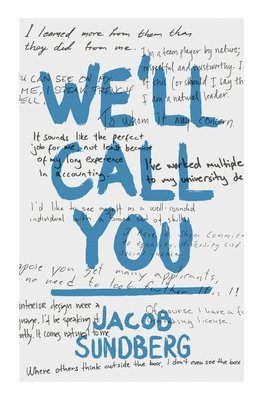 I learned more from them than
they did from me.
I'm a team player by nature,
and trustworthy. I
WE'LL
child (or should I say th
I am a natural leader.
ME, I SPEAK FRENCH
To whom it may concern.
It sounds like the perfect
job for me, not least because
of my long experience
in accounting.
I've worked multiple
to my university de
CALL
I'd like to see myself as a well-rounded
individual with a broad set of skills
YOU
you get many applicants,
no need to look further
interior design were a
I'd be speaking it
It comes natural to me.
Of course I have a
driving license.
JACOB
SUNDBERG
Where others think outside the box, I don't even see the box